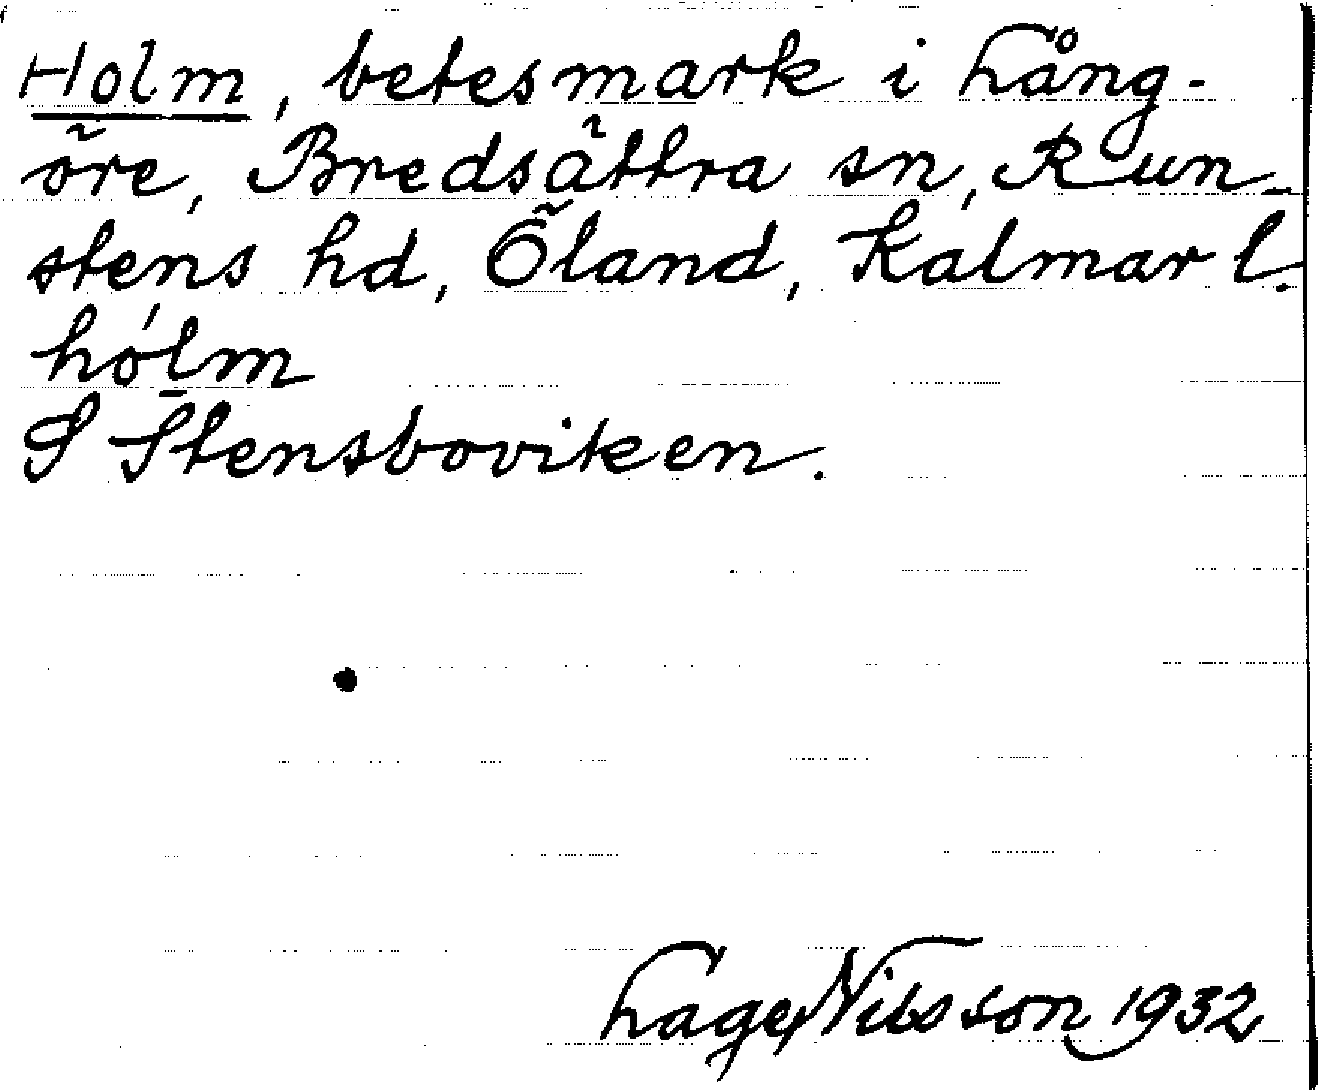 Holm, betesmark i Lång-
öre, Bredsättra sn, Run-
stens hd, Öland, Kalmar l.
hólm
S Stensboviken.
Lage Nilsson 1932